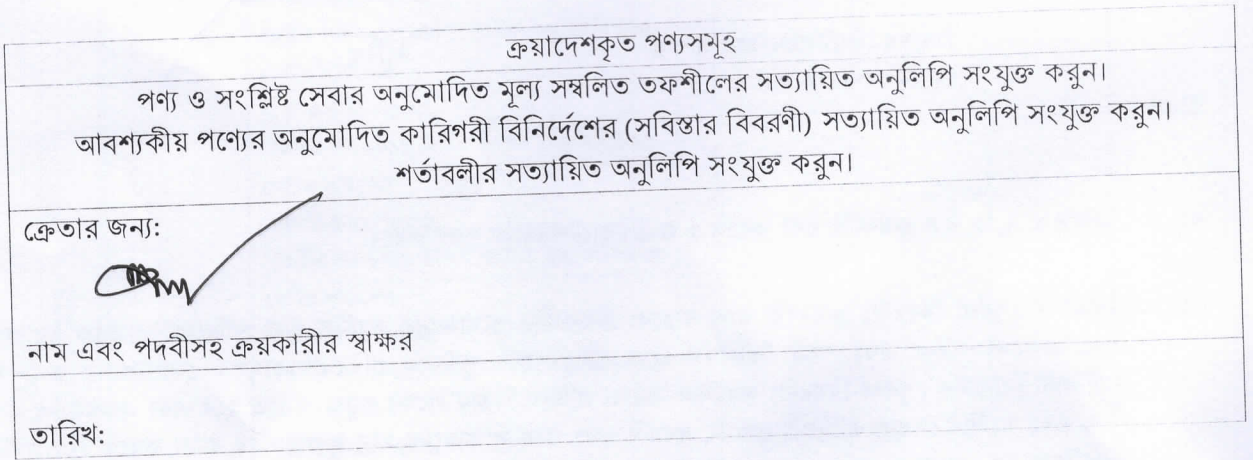 ক্রয়াদেশকৃত পণ্যসমূহ
পণ্য ও সংশ্লিষ্ট সেবার অনুমোদিত মূল্য সম্বলিত তফশীলের সত্যায়িত অনুলিপি সংযুক্ত করুন।
আবশ্যকীয় পণ্যের অনুমোদিত কারিগরী বিনির্দেশের (সবিস্তার বিবরণী) সত্যায়িত অনুলিপি সংযুক্ত করুন।
শর্তাবলীর সত্যায়িত অনুলিপি সংযুক্ত করুন।
ক্রেতার জন্য:
নাম এবং পদবীসহ ক্রয়কারীর স্বাক্ষর
তারিখ: